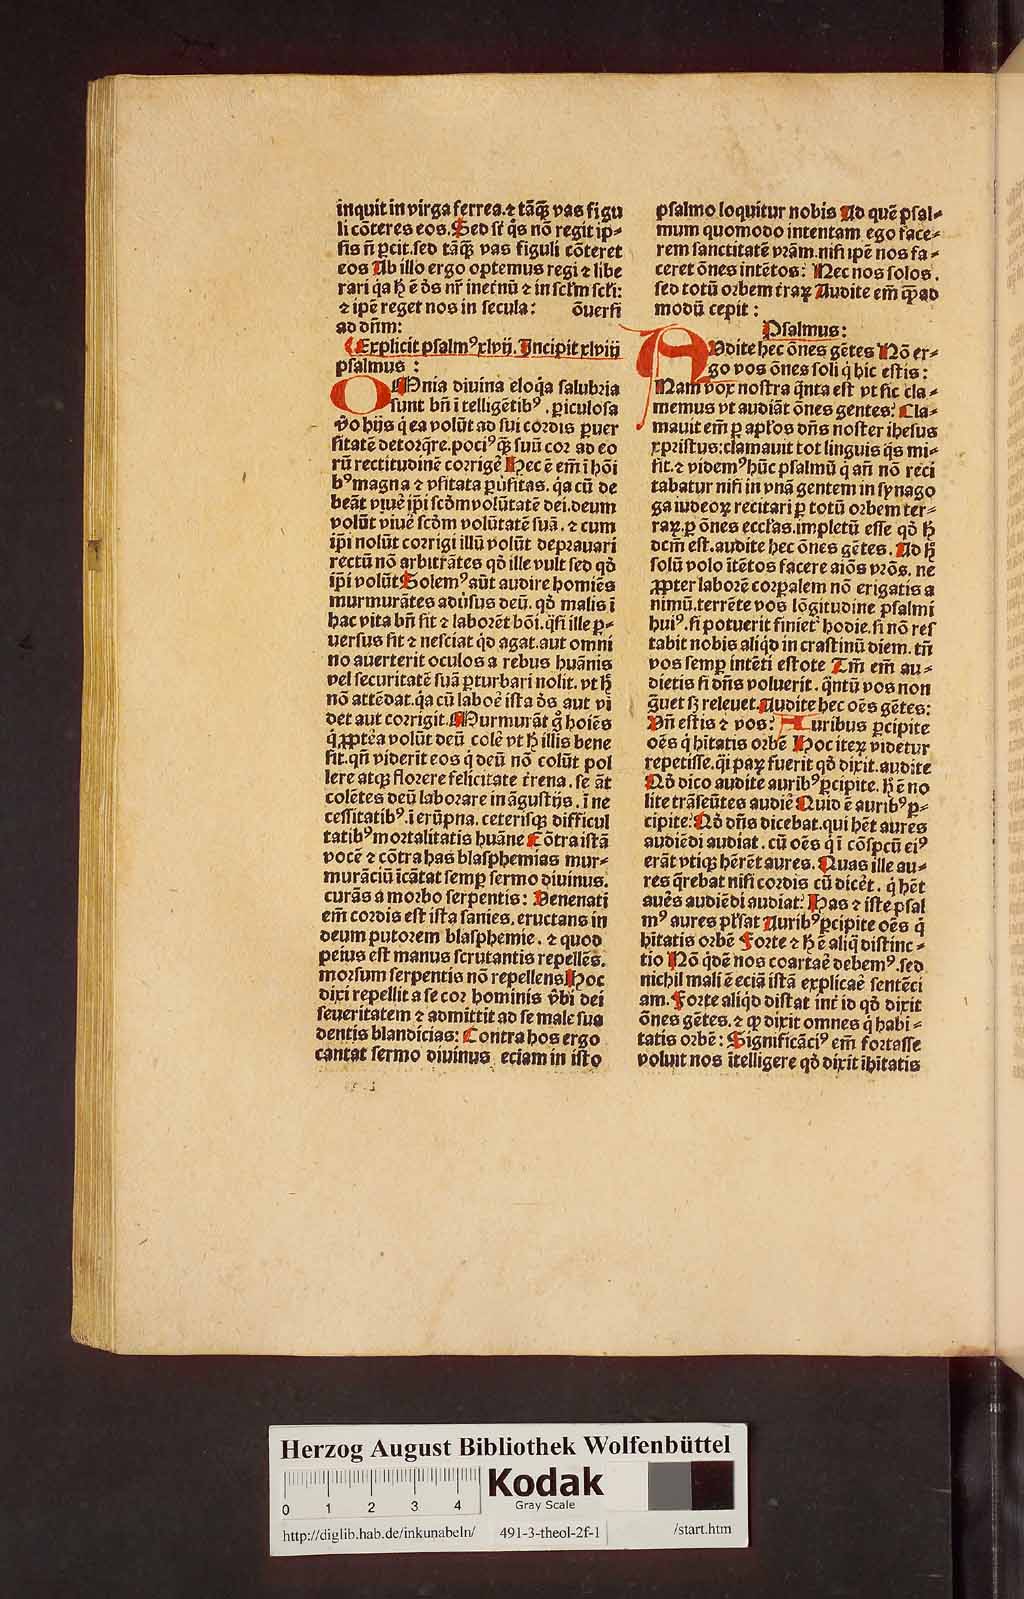 inquit in virga ferrea.⁊ tāq̄ȝ vas figu
li cōteres eos. Sed st̄ q̇s nō regit ip⸗
sis n̄ ꝑcit.sed tāq̄ȝ vas figuli cōteret
eos Ab illo ergo optemus regi ⁊ libe
rari q̇a h̄ ē d̓s nr̄ inet̓nū ⁊ in scl̓m scl̓i:
⁊ ip̄e reget nos in secula: ō̄uersi
ad dn̄m:
Explicit psalmꝰ xlvij. Incipit xlviij
psalmus :
OMnia divina eloq̇a salubria
sunt bn̄ ī telligētibꝰ . ꝑiculosa
v̓o hijs q̇ ea volūt ad sui cordis ꝑuer
sitatē detorq̄re.pociꝰ q̄ȝ suū cor ad eo
rū rectitudinē corrigē Hec ē em̄ ī hōi
bꝰ magna ⁊ vsitata ꝑu̓sitas. q̇a cū de
beāt viue̓ ip̄i scd̓m volūtatē dei.deum
volūt viue̓ scd̓m volūtatē suā. ⁊ cum
ip̄i nolūt corrigi illū volūt depravari
rectū nō arbitrātes qd̓ ille vult sed qd̓
ip̄i volūt Solemꝰ aūt audire homiēs
murmurātes adu̓sus deū. qd̓ malis ī
hac vita bn̄ sit ⁊ laborēt bōi.q̇si ille ꝑ⸗
versus sit ⁊ nesciat q̇d agat.aut omni
no averterit oculos a rebus huānis
vel securitatē suā ꝑturbari nolit. vt h̄
nō attēdat.q̇a cū laboe̓ ista d̓s aut vi
det aut corrigit. Murmurāt g̊ hoiēs
q̇ ꝓpte̓a volūt deū cole̓ vt h̄ illis bene
sit.qn̄ viderit eos q̇ deū nō colūt pol
lere atqȝ florere felicitate t̓rena. se āt
colētes deū laborare in āgustijs. ī ne
cessitatibꝰ.ī erūpna. ceterisqȝ difficul
tatibꝰ mortalitatis huāne Cōtra istā
vocē ⁊ cōtra has blasphemias mur⸗
murāciū īcātat semꝑ sermo divinus.
curās a morbo serpentis: Venenati
em̄ cordis est ista sanies. eructans in
deum putorem blasphemie. ⁊ quod
peius est manus scrutantis repellēs.
morsum serpentis nō repellens Hoc
dixi repellit a se cor hominis v̓bi dei
severitatem ⁊ admittit ad se male sua
dentis blandicias: Contra hos ergo
cantat sermo divinus eciam in isto
psalmo loquitur nobis Ad quē psal⸗
mum quomodo intentam ego face⸗
rem sanctitatē vr̄am.nisi ip̄e nos fa⸗
ceret ōnes intētos: Nec nos solos.
sed totū orbem t̓raꝝ Audite em̄ q̄̄ad
modū cepit :
Psalmus:
AVdite hec ōnes gētes Nō er⸗
go vos ōnes soli q̇ hic estis:
Nam vox nostra q̇nta est vt sic cla⸗
memus vt audiāt ōnes gentes: Cla⸗
mavit em̄ ꝑ apl̓os dn̄s noster ihesus
xpristus:clamavit tot linguis q̇s mi⸗
sit.⁊ videmꝰ hūc psalmū q̇ an̄ nō reci
tabatur nisi in vnā gentem in synago
ga iudeoꝝ recitari ꝑ totū orbem ter⸗
raꝝ.ꝑ ōnes eccl̓as.impletū esse qd̓ h̄
dcm̄ est.audite hec ōnes gētes. Ad h̄
solū volo ītētos facere aiōs vr̄os. ne
ꝓpter laborē corꝑalem nō erigatis a
nimū.terrēte vos lōgitudine psalmi
huiꝰ.si potuerit finiet̓ hodie.si nō res
tabit nobis aliq̇d in crastinū diem. tn̄
vos semꝑ intēti estote Tm̄ em̄ au⸗
dietis si dn̄s voluerit. q̇ntū vos non
g̓vet sȝ relevet. Audite hec oēs gētes:
Vn̄ estis ⁊ vos: Auribus ꝑcipite
oēs q̇ hītatis orbē Hoc iteꝝ videtur
repetisse.q̇i paꝝ fuerit qd̓ dixit.audite
Qd̓ dico audite auribꝰ ꝑcipite. h̄ ē no
lite trāseūtes audie̓ Quid ē auribꝰ ꝑ⸗
cipite: Qd̓ dn̄s dicebat.qui hēt aures
audiēdi audiat. cū oēs q̇ ī cōspcū eiꝰ
erāt vtiqȝ hērēt aures. Quas ille au⸗
res q̄rebat nisi cordis cū dice̓t. q̇ hēt
aue̓s audiēdi audiat: Has ⁊ iste psal
mꝰ aures pl̓sat Auribꝰ ꝑcipite oēs q̇
hītatis orbē Forte ⁊ h̄ ē aliq̇ distinc⸗
tio Nō q̇dē nos coartae̓ debemꝰ.sed
nichil mali ē eciā istā explicae̓ sentēci
am. Forte aliq̇d distat int̓ id qd̓ dixit
ōnes gētes. ⁊ qȝ dixit omnes q̇ habi⸗
tatis orbē: Significāciꝰ em̄ fortasse
voluit nos ītelligere qd̓ dixit īhītatis
Herzog August Bibliothek Wolfenbüttel
Kodak
Gray Scale
0 1 2 3 4
http://diglib.hab.de/inkunabeln/ 491-3-theol-2f-1 /start.htm